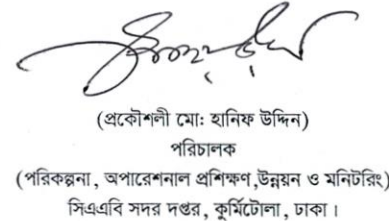 (প্রকৌশলী মো: হানিফ উদ্দিন)
পরিচালক
(পরিকল্পনা, অপারেশনাল প্রশিক্ষণ,উন্নয়ন ও মনিটরিং)
সিএএবি সদর দপ্তর, কুর্মিটোলা, ঢাকা।